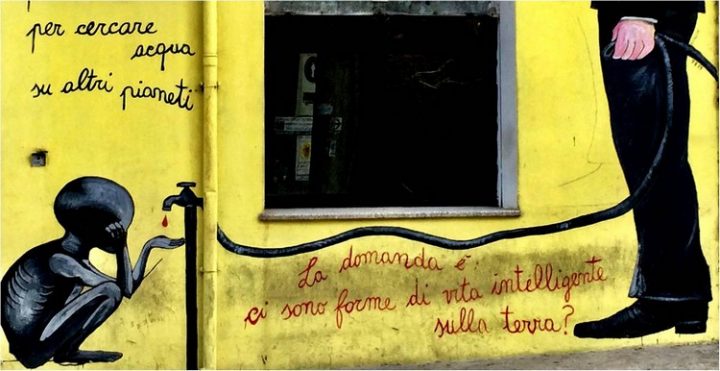 per cercare
acqua
su altri pianeti
La domanda è:
ci sono forme di vita intelligente
sulla terra?